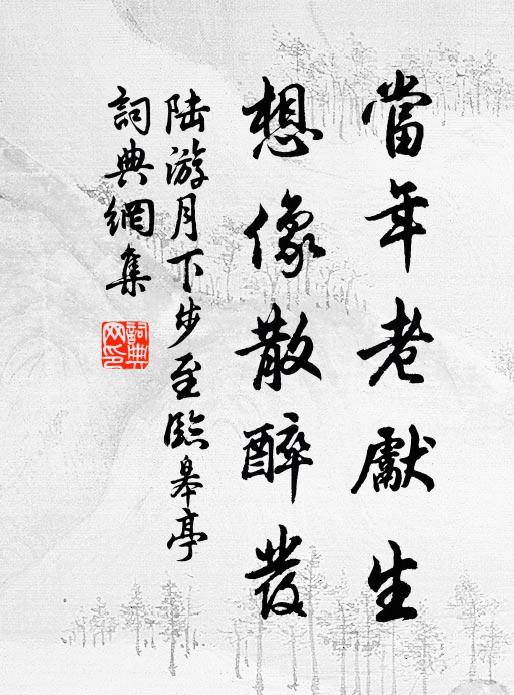 當年老獻生
想像散醉發
陆游月下步至臨皋亭
詞典網集
詞典
网印